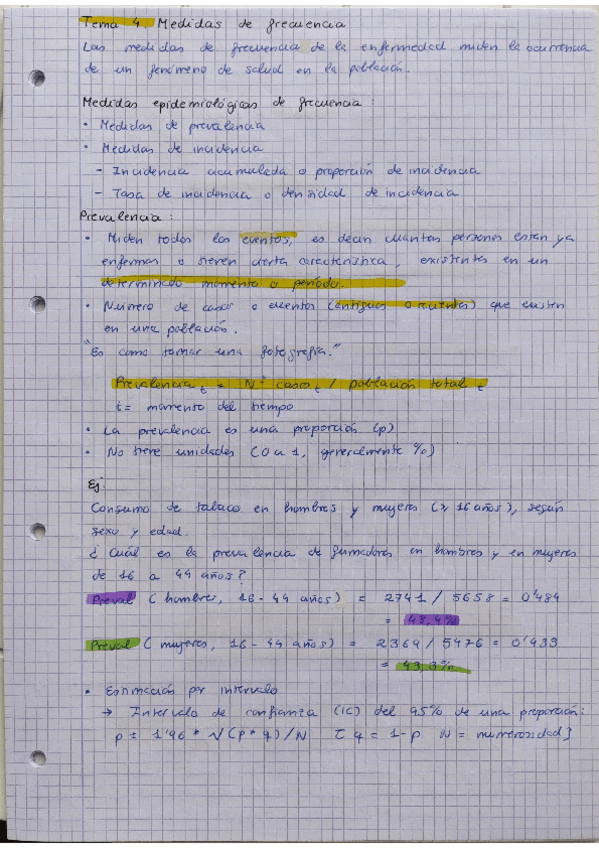 Tema 4. Medidas de frecuencia
Las medidas de frecuencia de la enfermedad miden la ocurrencia
de un fenómeno de salud en la población.
Medidas epidemiológicas de frecuencia:
• Medidas de prevalencia
• Medidas de incidencia
- Incidencia acumulada o proporción de incidencia
- Tasa de incidencia o densidad de incidencia
Prevalencia:
• Miden todos los eventos, es decir cuantas personas están ya
enfermas o tienen cierta característica, existentes en un
determinado momento o período.
• Número de casos o eventos (antiguos o recientes) que existen
en una población.
"Es como tomar una fotografía."
Prevalencia t = Nº casos t / población total t
t = momento del tiempo
• La prevalencia es una proporción (p)
• No tiene unidades (0 a 1, generalmente %)
Ej:
Consumo de tabaco en hombres y mujeres (≥ 16 años), según
sexo y edad.
¿Cuál es la prevalencia de fumadores en hombres y en mujeres
de 16 a 44 años?
Preval (hombres, 16-44 años) = 2741 / 5658 = 0'484
= 48,4%
Preval (mujeres, 16-44 años) = 2369 / 5476 = 0'433
= 43,3%
• Estimación por intervalo
→ Intervalo de confianza (IC) del 95% de una proporción:
p ± 1'96 * √(p * q)/N [q = 1-p N = numerosidad]